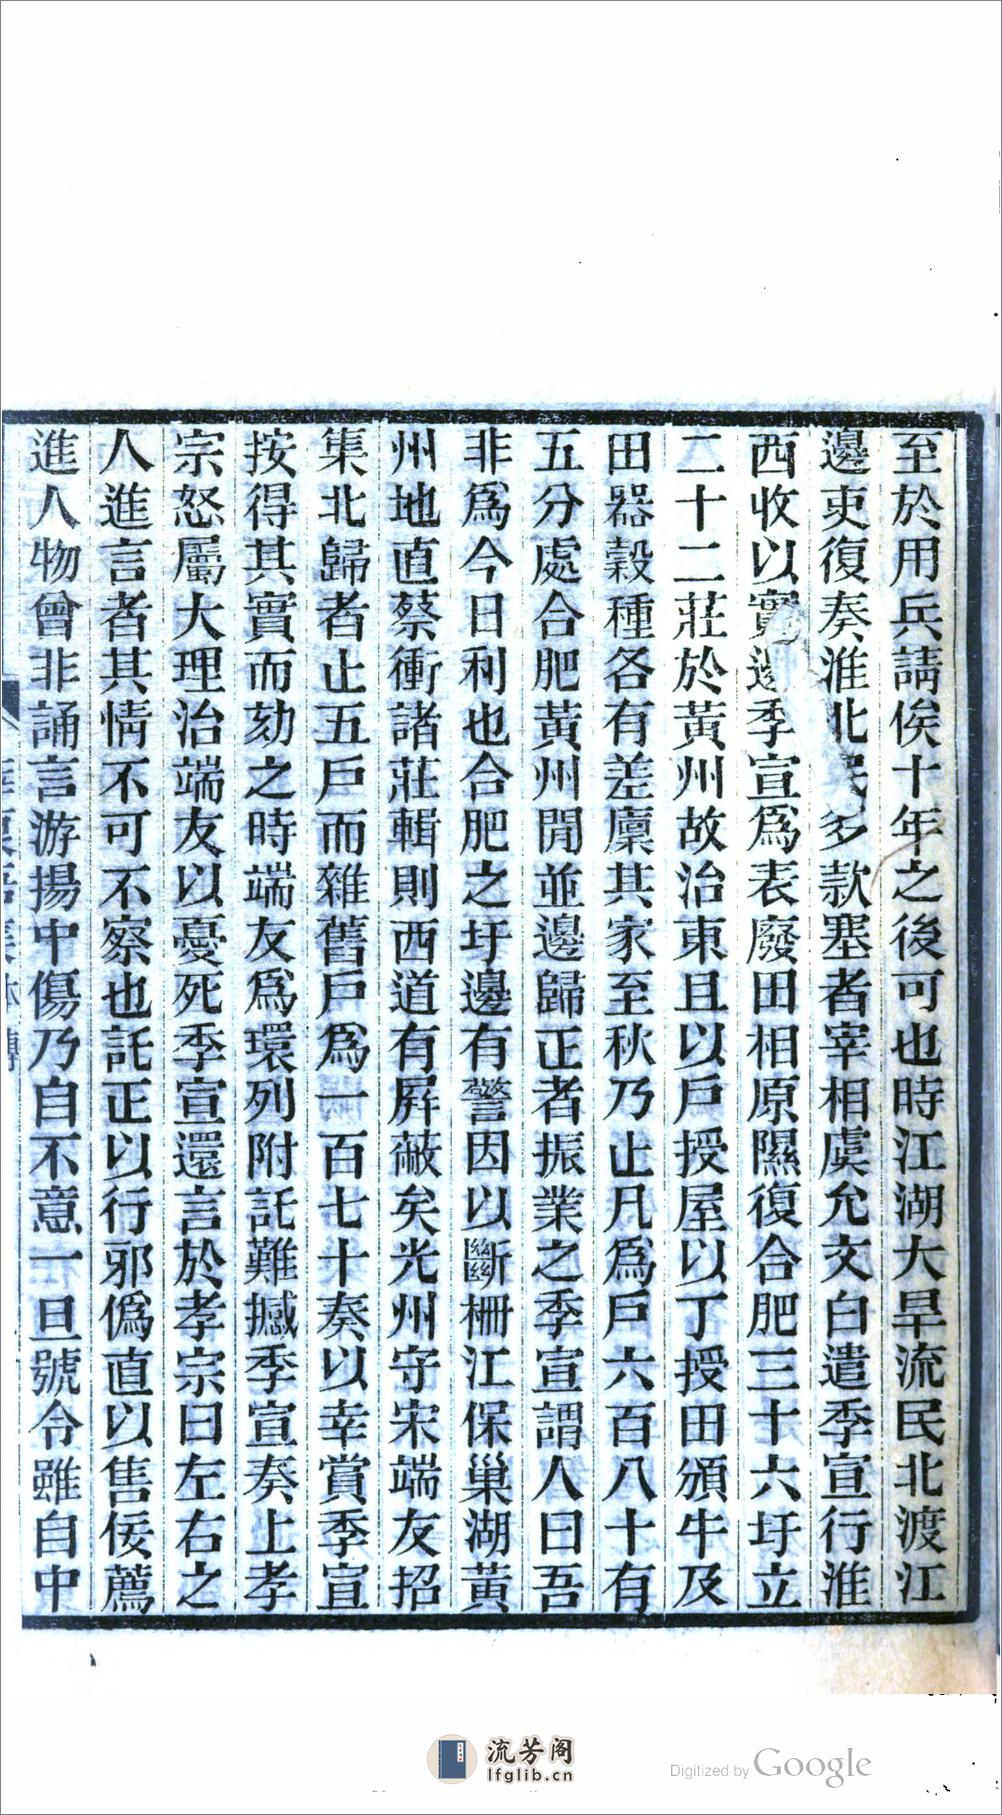 至於用兵請俟十年之後可也時江湖大旱流民北渡江
邊吏復奏淮北民多款塞者宰相虞允文白遣季宣行淮
西收以實邊季宣爲表廢田相原隰復合肥三十六圩立
二十二莊於黃州故治東且以戶授屋以丁授田頒牛及
田器穀種各有差廩其家至秋乃止凡爲戶六百八十有
五分處合肥黃州閒並邊歸正者振業之季宣謂人曰吾
非爲今日利也合肥之圩邊有警因以斷柵江保巢湖黃
州地直蔡衝諸莊輯則西道有屏蔽矣光州守宋端友招
集北歸者止五戶而雜舊戶爲一百七十奏以幸賞季宣
按得其實而劾之時端友爲環列附託難撼季宣奏上孝
宗怒屬大理治端友以憂死季宣還言於孝宗曰左右之
人進言者其情不可不察也託正以行邪僞直以售佞薦
進人物曾非誦言游揚中傷乃自不意一旦號令雖自中
流芳阁
lfglib.cn
Digitized by Google